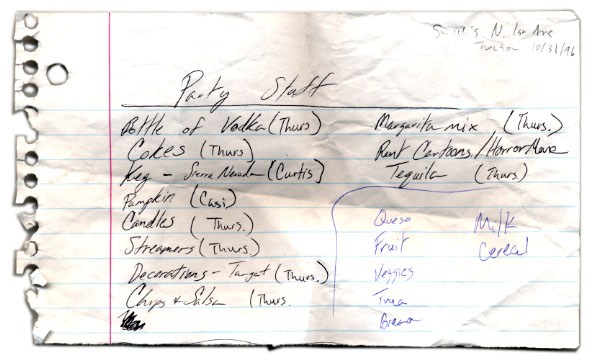 N. 1st Ave
Tucson 10/31/96
Party Stuff
Bottle of Vodka (Thurs)
Cokes (Thurs)
Keg - Sierra Nevada (Curtis)
Pumpkin (Casi)
Candles (Thurs.)
Streamers (Thurs.)
Decorations - Target (Thurs.)
Chips & Salsa (Thurs.
Margarita mix (Thurs.)
Rent Cartoons/Horror Movie
Tequila (Thurs)
Queso
Fruit
Veggies
Tuna
Bread
Milk
Cereal